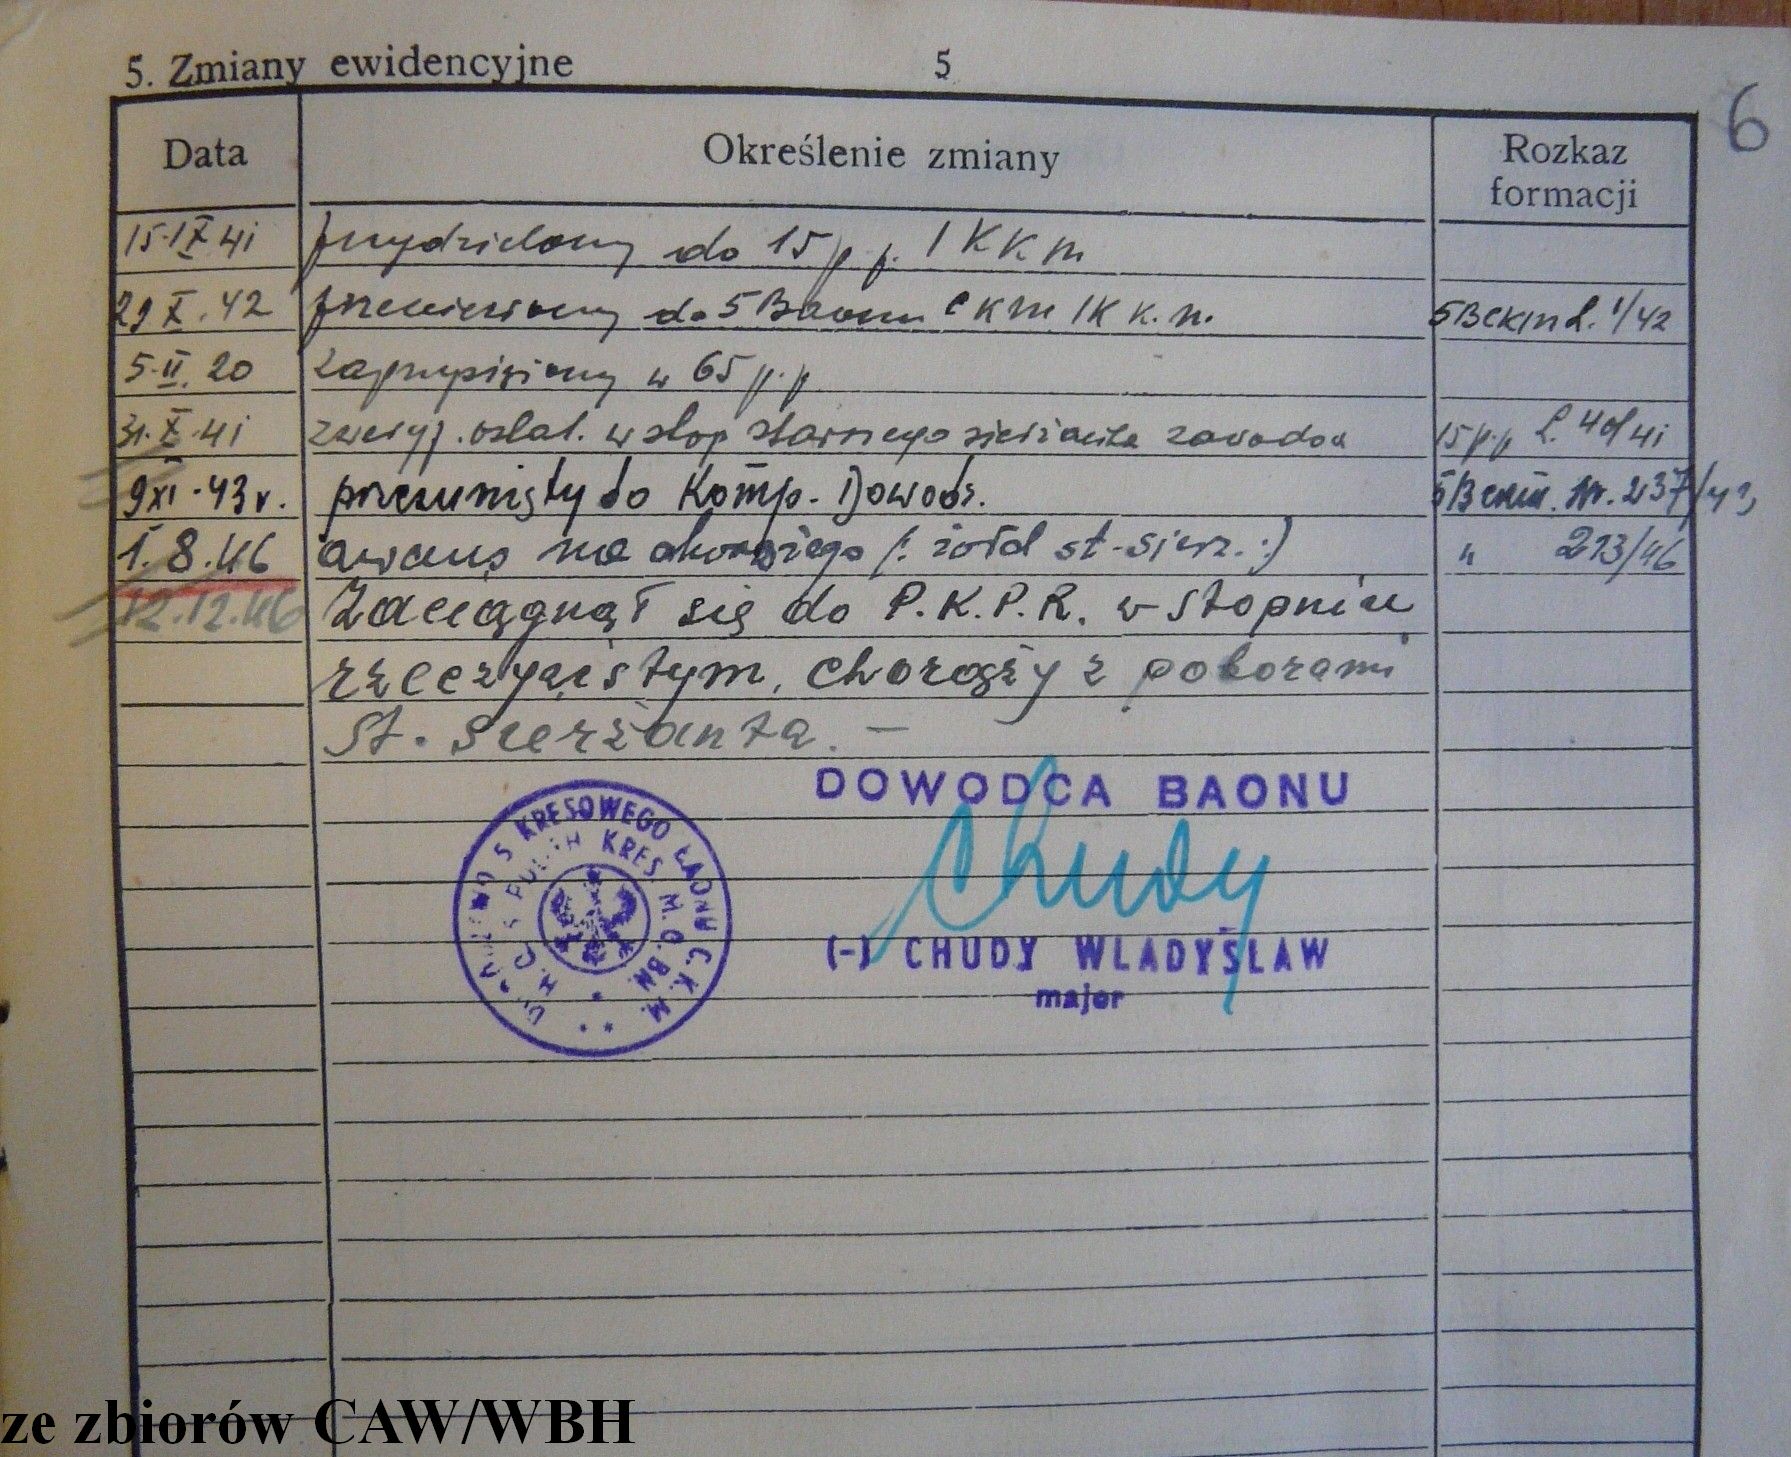 5. Zmiany ewidencyjne 5
6
Data Określenie zmiany Rozkaz formacji
15.IX.41 przydzielony do 15 p.p. I K K m
29 X. 42 przeniesiony do 5 Baonu C K M I K k. m. 5BCKM L. 1/42
5.II.20 zaprzysiężony w 65 p.p.
31.X.41 zweryf. ostat. w stop starszego sierżanta zawodow 15 p.p. L. 41
9XI.43r. przesunięty do Komp. Dowodz. 5BCKM. Nr. 237/43
1.8.46 awans na chorążego (: żołd st-sierz. :) " 213/46
12.12.46 Zaciągnął się do P.K.P.R. w stopniu
rzeczywistym, chorąży z poborami
st. sierżanta. —
DOWODCA BAONU
Chudy
(-) CHUDY WLADYSLAW
major
5 KRESOWEGO BAONU C.K.M.
H.Q. 5 KRES. M.G. BN.
ze zbiorów CAW/WBH